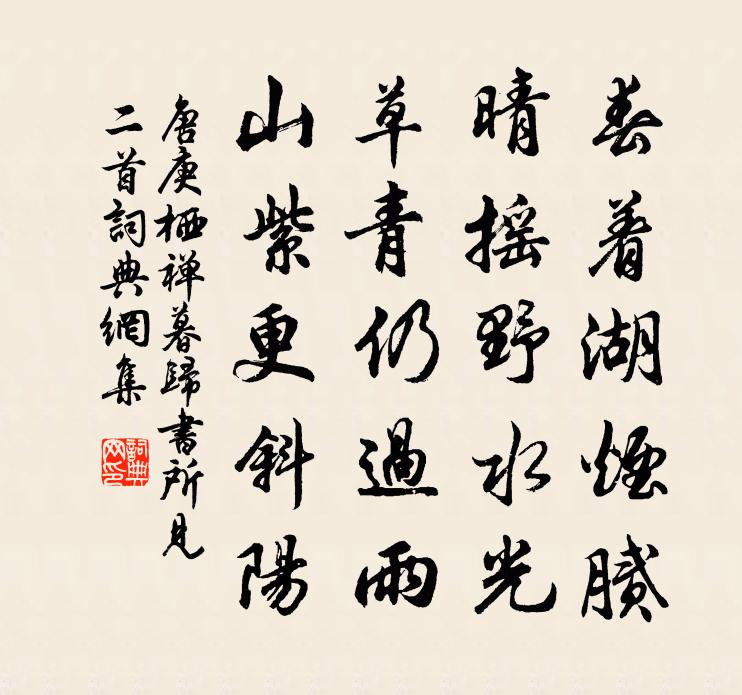 春着湖煙膩
晴摇野水光
草青仍過雨
山紫更斜陽
唐庚栖禅暮歸書所見
二首詞典網集
詞典网印